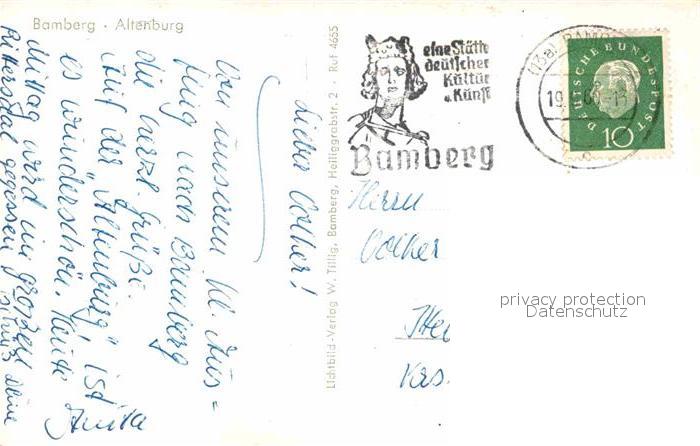 Bamberg · Altenburg
Lieber Volker!
Von unserem kl. Aus-
flug nach Bamberg
die herzl. Grüße.
Auf der "Altenburg" ist
es wunderschön. Heute
Mittag wird im großen
Rittersaal gegessen
Deine
Anita
Lichtbild-Verlag W. Tillig, Bamberg, Heiliggrabstr. 2 · Ruf 4655
eine Stätte
deutscher
Kultur
u. Kunst
Bamberg
(13a) BAMB
19
DEUTSCHE BUNDESPOST
10
Herrn
Volker
privacy protection
Datenschutz